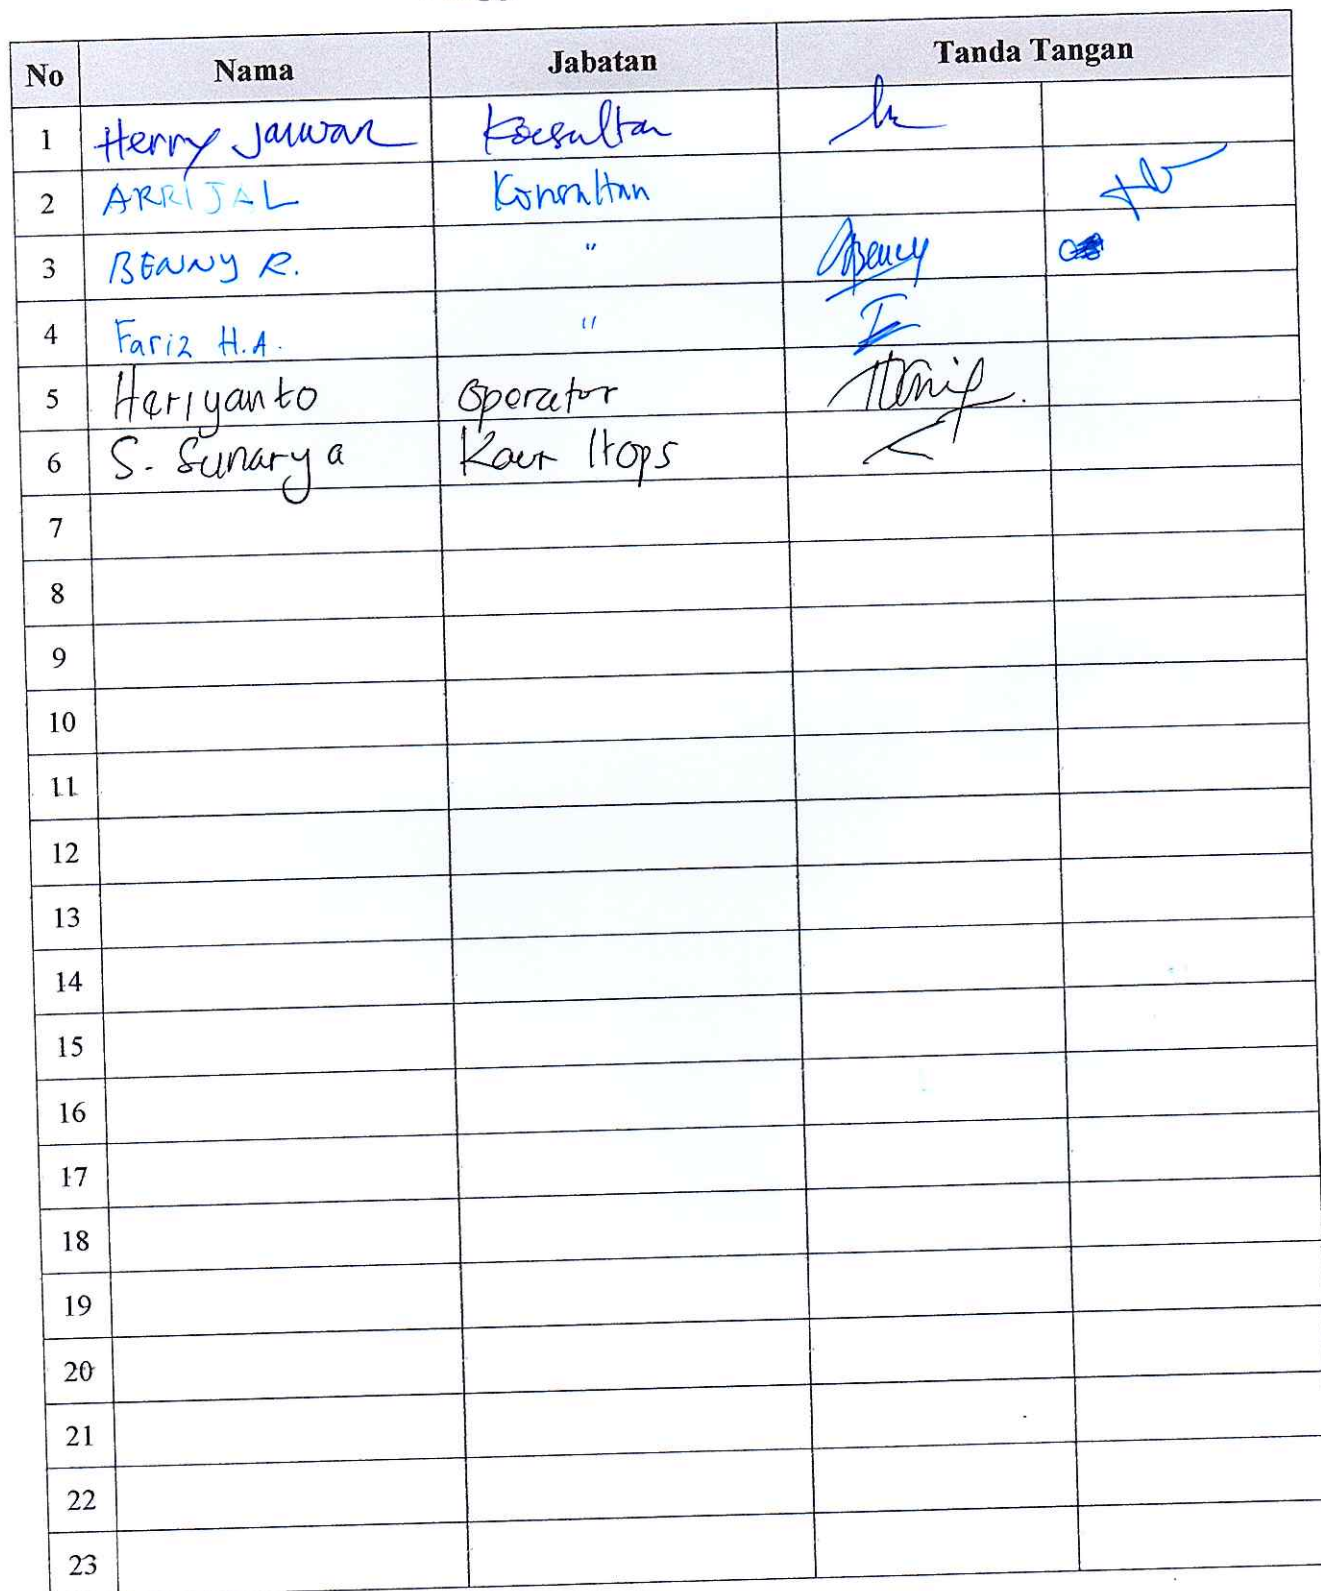 No Nama Jabatan Tanda Tangan
1 Henry Jauwan
2 ARRIJAL Konsultan
3 BENNY R. "
4 Fariz H.A. "
5 Hariyanto Operator
6 S. Sunarya Kaur Itops
7
8
9
10
11
12
13
14
15
16
17
18
19
20
21
22
23